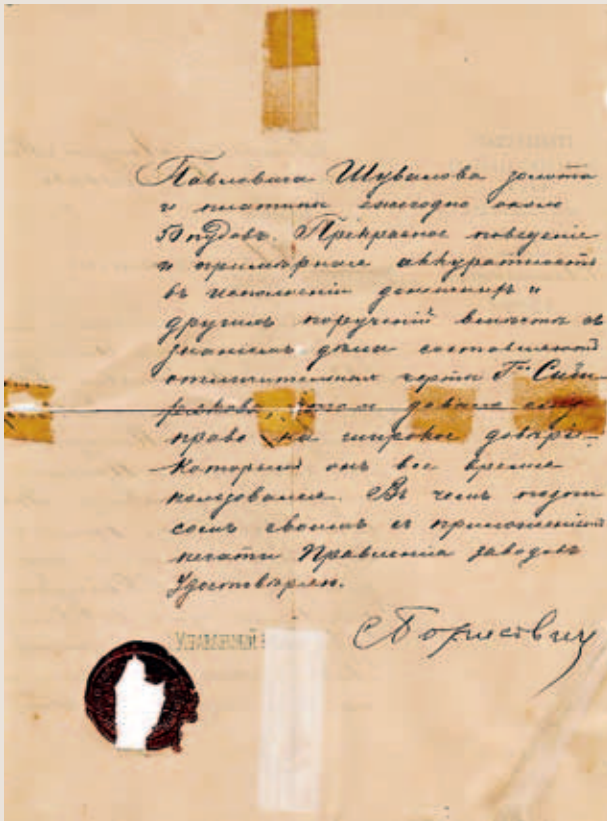 Павловича Шувалова золота
и платины ежегодно около
50 пудовъ. Прекрасное поведение
и примѣрная аккуратность
въ исполнении денежныхъ и
другихъ порученій вмѣстѣ съ
знаніемъ дѣла составляютъ
отличительная черта Гна Сиби-
рякова, давала ему
право на широкое довѣріе
которымъ онъ все время
пользовался. Въ чемъ подпи
сомъ своимъ съ приложеніемъ
печати Правленія заводовъ
Удостовѣряю.
УПРАВЛЯЮЩІЙ